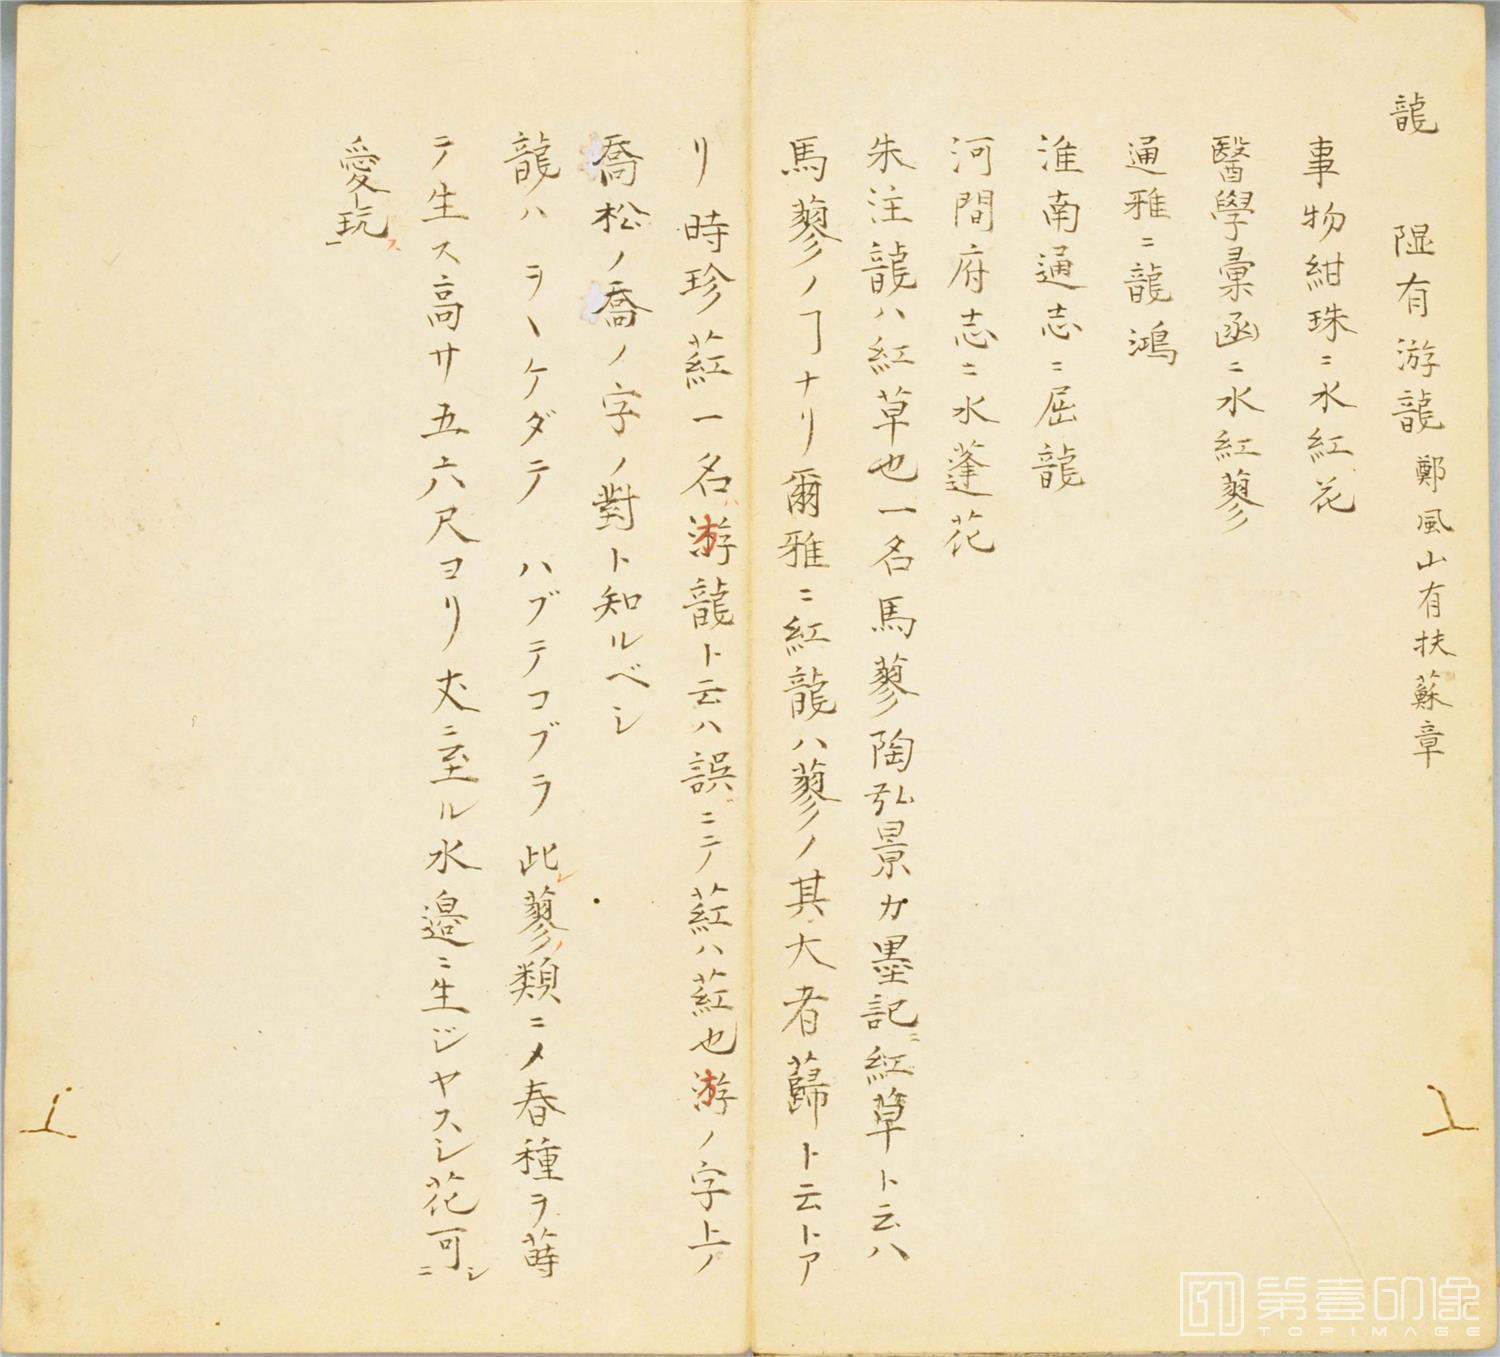 龍　隰有游龍 鄭風山有扶蘇章
事物紺珠ニ水紅花
醫學彙函ニ水紅蓼
通雅ニ龍鴻
淮南通志ニ屈龍
河間府志ニ水蓬花
朱注龍ハ紅草也一名馬蓼陶弘景カ墨記ニ紅草ト云ハ
馬蓼ノヿナリ爾雅ニ紅龍ハ蓼ノ其大者蘬ト云トア
リ時珍葒一名游龍ト云ハ誤ニテ葒ハ葒也游ノ字上ノ
喬松ノ喬ノ字ノ對ト知ルベシ
龍ハヲヽケダテ ハブテコブラ此レ蓼ノ類ニメ春種ヲ蒔
テ生ス高サ五六尺ヨリ丈ニ至ル水邉ニ生ジヤスシ花可シ
愛玩ス
第壹印像
TOPIMAGE